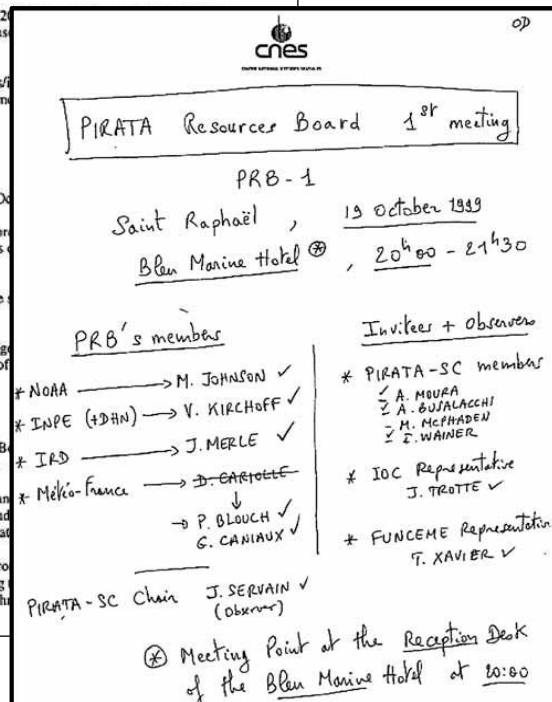 OD
cnes
PIRATA Resources Board 1st meeting
PRB-1
Saint Raphaël, 19 October 1999
Bleu Marine Hotel ⊛, 20h00 - 21h30
PRB's members
* NOAA → M. JOHNSON ✓
* INPE (+DHN) → V. KIRCHOFF ✓
* IRD → J. MERLE ✓
* Météo-France → D. CARIOLLE
↓
→ P. BLOUCH ✓
G. CANIAUX ✓
PIRATA-SC Chair J. SERVAIN ✓
(Observer)
Invitees + Observers
* PIRATA-SC members
✓ A. MOURA
✓ A. BUSALACCHI
- M. MCPHADEN
✓ I. WAINER
* IOC Representative
J. TROTTE ✓
* FUNCEME Representative
T. XAVIER ✓
⊛ Meeting Point at the Reception Desk
of the Bleu Marine Hotel at 20:00